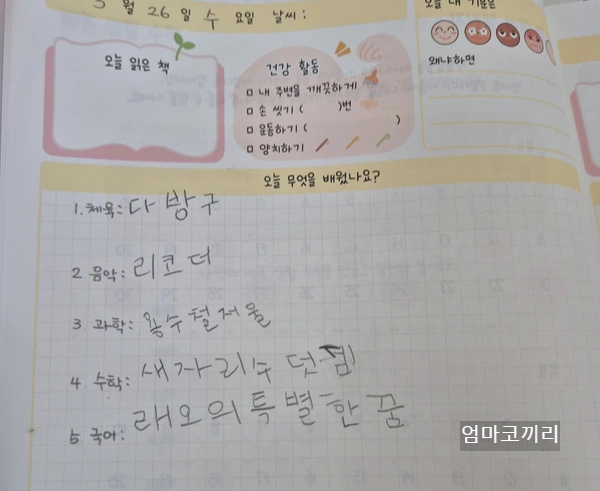 5 월 26 일 수 요일 날씨:
오늘 내 기분은
왜냐하면
오늘 읽은 책
건강 활동
□ 내 주변을 깨끗하게
□ 손 씻기 ( )번
□ 운동하기 ( )
□ 양치하기
오늘 무엇을 배웠나요?
1. 체육: 다방구
2 음악: 리코더
3 과학: 용수철저울
4 수학: 세자리수 덧셈
5 국어: 래오의 특별한 꿈
엄마코끼리